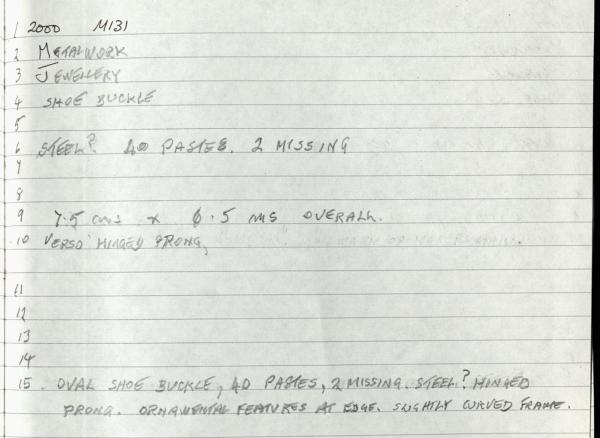 1 2000 M131
2 METALWORK
3 JEWELLERY
4 SHOE BUCKLE
5
6 STEEL? 40 PASTES. 2 MISSING
7
8
9 7.5 cms x 6.5 cms OVERALL.
10 VERSO HINGED PRONG,
11
12
13
14
15. OVAL SHOE BUCKLE, 40 PASTES, 2 MISSING. STEEL? HINGED
PRONG. ORNAMENTAL FEATURES AT EDGE. SLIGHTLY CURVED FRAME.